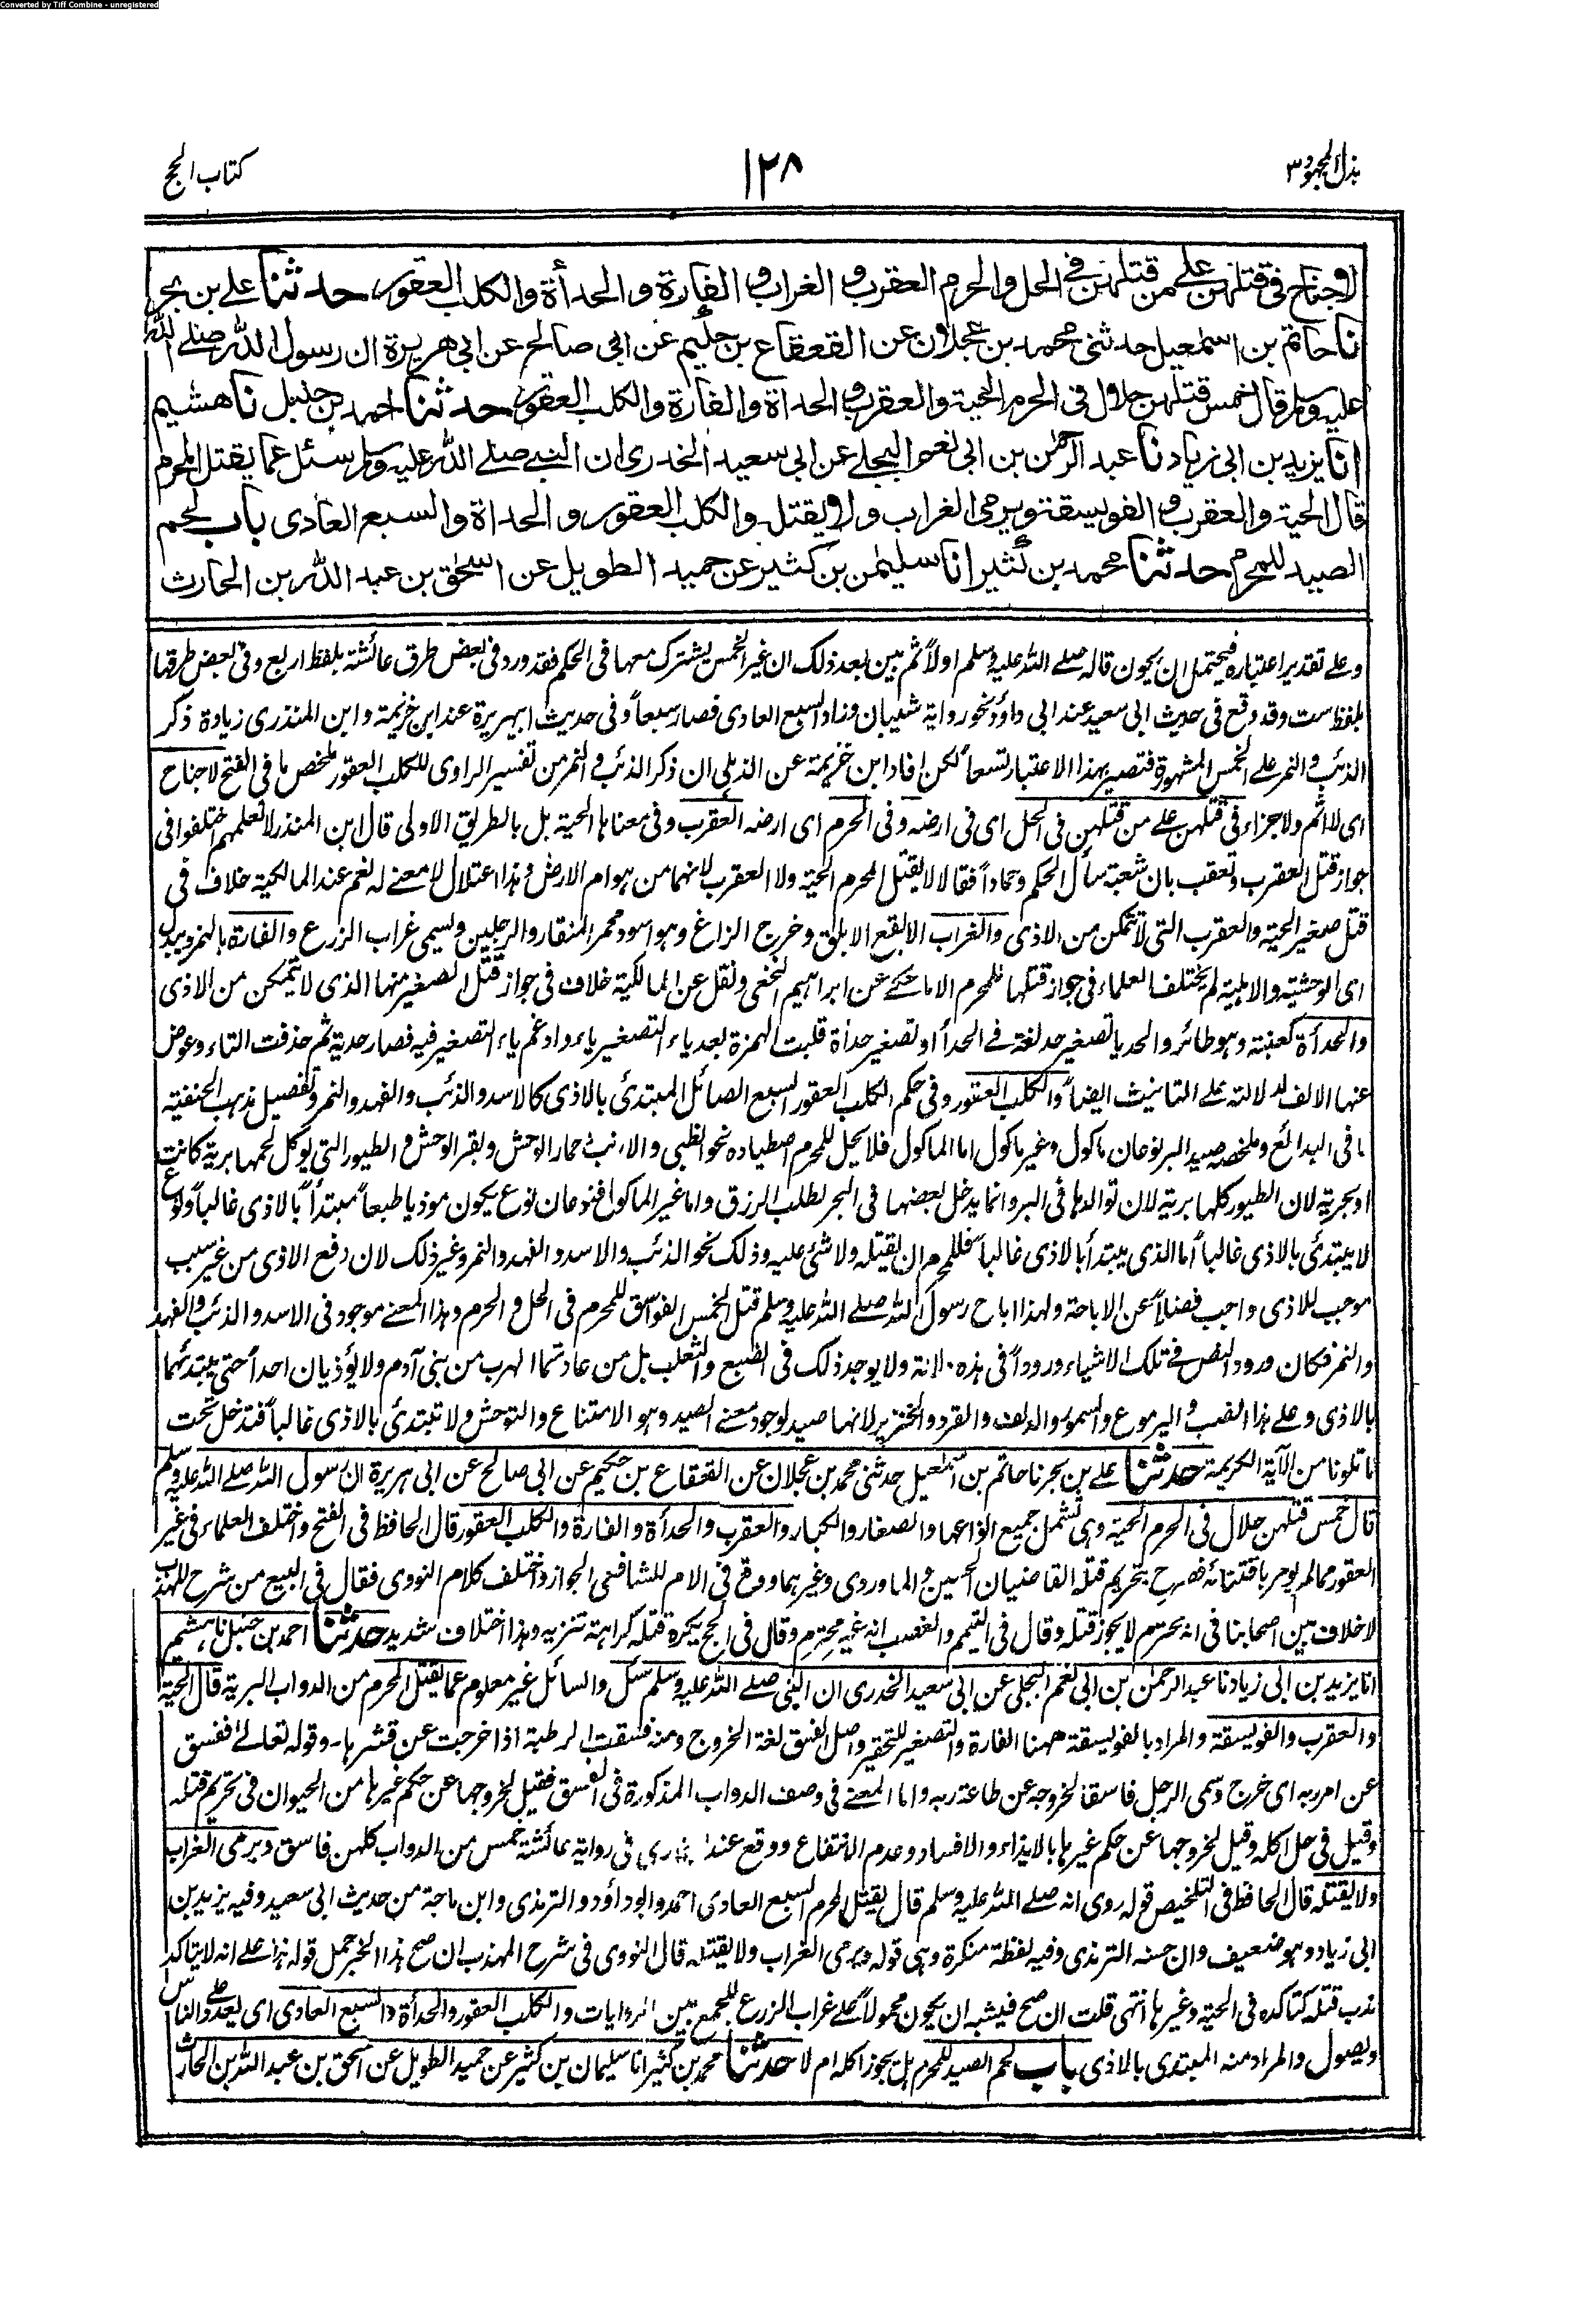 Converted by Tiff Combine - unregistered
بذل المجهود ٣
١٢٨
كتاب الحج
لا جناح فى قتلهن على من قتلهن فى الحل والحرم العقرب و الغراب و الفارة و الحدأة والكلب العقور حدثنا على بن بحر
نا حاتم بن اسمعيل حدثنى محمد بن عجلان عن القعقاع بن حكيم عن ابى صالح عن ابى هريرة ان رسول الله صلى الله
عليه وسلم قال خمس قتلهن حلال فى الحرم الحية والعقرب و الحدأة والفارة والكلب العقور حدثنا احمد بن حنبل نا هشيم
انا يزيد بن ابى زياد نا عبد الرحمٰن بن ابى نعم البجلى عن ابى سعيد الخدرى ان النبى صلى الله عليه وسلم سئل عما يقتل المحرم
قال الحية والعقرب و الفويسقة ويرمى الغراب ولا يقتله والكلب العقور و الحدأة والسبع العادى باب لحم
الصيد للمحرم حدثنا محمد بن كثير انا سليمٰن بن كثير عن حميد الطويل عن اسحٰق بن عبد الله بن الحارث
وعلى تقدير اعتباره فيحتمل ان يكون قاله صلى الله عليه وسلم اولاً ثم بين بعد ذلك ان غير الخمس يشترك معها فى الحكم فقد ورد فى بعض طرق عائشة بلفظ اربع وفى بعض طرقها
بلفظ ست وقد وقع فى حديث ابى سعيد عند ابى داؤد نحو رواية شيبان وزاد السبع العادى فصار سبعاً وفى حديث ابيهريرة عند ابن خزيمة و ابن المنذرى زيادة ذكر
الذئب و النمر على الخمس المشهورة فتصير بهذا الاعتبار تسعاً لكن افاد ابن خزيمة عن الذهلى ان ذكر الذئب و النمر من تفسير الراوى للكلب العقور ملخص ما فى الفتح لا جناح
اى لا اثم ولا جزاء فى قتلهن على من قتلهن فى الحل اى فى ارضه وفى الحرم اى ارضه العقرب وفى معناها الحية بل بالطريق الاولى قال ابن المنذر لا نعلمهم اختلفوا فى
جواز قتل العقرب وتعقب بان شعبة سأل الحكم وحماداً فقالا لا يقتل المحرم الحية ولا العقرب لانهما من هوام الارض وهذا اعتلال لا معنى له نعم عند المالكية خلاف فى
قتل صغير الحية والعقرب التى لا تتمكن من الاذى والغراب الا الابقع الابلق وخرج الزاغ وهو اسود محمر المنقار والرجلين ويسمى غراب الزرع والفارة بالهمز ويبدل
اى الوحشية والاهلية لم يختلف العلماء فى جواز قتلها للمحرم الا ما حكى عن ابراهيم النخعى ونقل عن المالكية خلاف فى جواز قتل الصغير منها الذى لا يتمكن من الاذى
والحدأة كعنبة وهو طائر والحديا تصغير حد لغة فى الحدأ او تصغير حدأة قلبت الهمزة بعد ياء التصغير ياء وادغم ياء التصغير فيه فصار حدية ثم حذفت التاء وعوض
عنها الالف لدلالته على التانيث ايضاً والكلب العقور وفى حكم الكلب العقور السبع الصائل المبتدئ بالاذى كالاسد والذئب والفهد والنمر وتفصيل مذهب الحنفية
ما فى البدائع وملخصه صيد البر نوعان ماكول وغير ماكول اما الماكول فلا يحل للمحرم اصطياده نحو الظبى والارنب وحمار الوحش وبقر الوحش و الطيور التى يوكل لحمها برية كانت
او بحرية لان الطيور كلها برية لان توالدها فى البر وانما يدخل بعضها فى البحر لطلب الرزق واما غير الماكول فنوعان نوع يكون موذيا طبعاً مبتدأ بالاذى غالباً ونوع
لا يبتدئ بالاذى غالباً اما الذى يبتدأ بالاذى غالباً فللمحرم ان يقتله ولا شئ عليه وذلك نحو الذئب والاسد والفهد والنمر وغير ذلك لان دفع الاذى من غير سبب
موجب للاذى واجب فضلاً عن الاباحة ولهذا اباح رسول الله صلى الله عليه وسلم قتل الخمس الفواسق للمحرم فى الحل و الحرم وهذا المعنى موجود فى الاسد والذئب والفهد
والنمر فكان ورود النص فى تلك الاشياء وروداً فى هذه دلالة ولا يوجد ذلك فى الضبع والثعلب بل من عادتهما الهرب من بنى آدم ولا يؤذيان احداً حتى يبتدئهما
بالاذى وعلى هذا الضب و اليربوع والسمور والدلف والقرد والخنزير لانها صيد لوجود معنى الصيد وهو الامتناع والتوحش ولا تبتدئ بالاذى غالباً فتدخل تحت
ما تلونا من الآية الكريمة حدثنا على بن بحر نا حاتم بن اسمعيل حدثنى محمد بن عجلان عن القعقاع بن حكيم عن ابى صالح عن ابى هريرة ان رسول الله صلى الله عليه وسلم
قال خمس قتلهن حلال فى الحرم الحية وهى تشمل جميع انواعها والصغار والكبار والعقرب والحدأة والفارة والكلب العقور قال الحافظ فى الفتح واختلف العلماء فى غير
العقور مما لم يومر باقتنائه فصرح بتحريم قتله القاضيان الحسين و الماوردى وغيرهما ووقع فى الام للشافعى الجواز واختلف كلام النووى فقال فى البيع من شرح المهذب
لا خلاف بين اصحابنا فى انه محترم لا يجوز قتله وقال فى التيمم والغصب انه غير محترم وقال فى الحج يكره قتله كراهة تنزيه وهذا اختلاف شديد حدثنا احمد بن حنبل نا هشيم
انا يزيد بن ابى زياد نا عبد الرحمٰن بن ابى نعم البجلى عن ابى سعيد الخدرى ان النبى صلى الله عليه وسلم سئل والسائل غير معلوم عما يقتل المحرم من الدواب البرية قال الحية
والعقرب والفويسقة والمراد بالفويسقة ههنا الفارة والتصغير للتحقير واصل الفسق لغة الخروج ومنه فسقت الرطبة اذا خرجت عن قشرها۔ وقوله تعالى ففسق
عن امر ربه اى خرج وسمى الرجل فاسقا لخروجه عن طاعة ربه واما المعنى فى وصف الدواب المذكورة فى الفسق فقيل لخروجها عن حكم غيرها من الحيوان فى تحريم قتله
وقيل فى حل اكله وقيل لخروجها عن حكم غيرها بالايذاء والافساد وعدم الانتفاع ووقع عند فى رواية عائشة خمس من الدواب كلهن فاسق ويرمى الغراب
ولا يقتله قال الحافظ فى التلخيص قوله روى انه صلى الله عليه وسلم قال يقتل المحرم السبع العادى احمد وابو داؤد والترمذى وابن ماجة من حديث ابى سعيد وفيه يزيد بن
ابى زياد وهو ضعيف وان حسنه الترمذى وفيه لفظة منكرة وهى قوله ويرمى الغراب ولا يقتله قال النووى فى شرح المهذب ان صح هذا الخبر حمل قوله هذا على انه لا يتاكد
ندب قتله كتاكده فى الحية وغيرها انتهى قلت ان صح فيشبه ان يكون محمولاً على غراب الزرع للجمع بين الروايات والكلب العقور والحدأة والسبع العادى اى يعدو على الناس
ويصول والمراد منه المبتدى بالاذى باب لحم الصيد للمحرم هل يجوز اكله ام لا حدثنا محمد بن كثير انا سليمان بن كثير عن حميد الطويل عن اسحٰق بن عبد الله بن الحارث